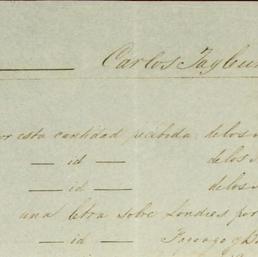 Carlos Tayleur
por esta cantidad recibida de los
— id — de los
— id — de los
una letra sobre Londres por
— id —